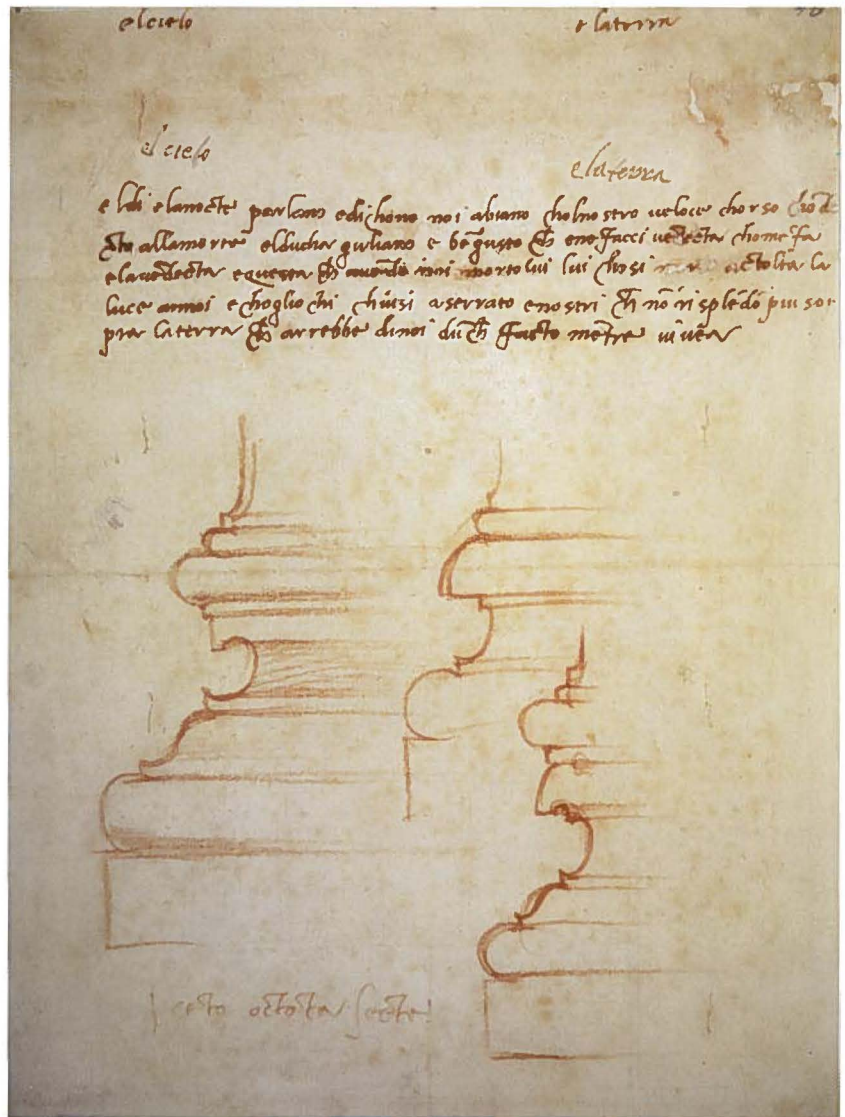 el cielo e laterra
el cielo e laterra
e ldi elanocte parlano edichono noi abiano cholnostro veloce chorso
cto allamorte elducha guliano e bē gusto ch enefacci vēdecta chome fa
elavēdecta e questa ch avendo noi morto lui lui chosi a tolta la
luce annoi e chogliochi chiusi a serrato enostri ch nō risplēdō piu sor
pra laterra ch arrebbe dinoi dūch facto mētre vivea
cēto octota secte